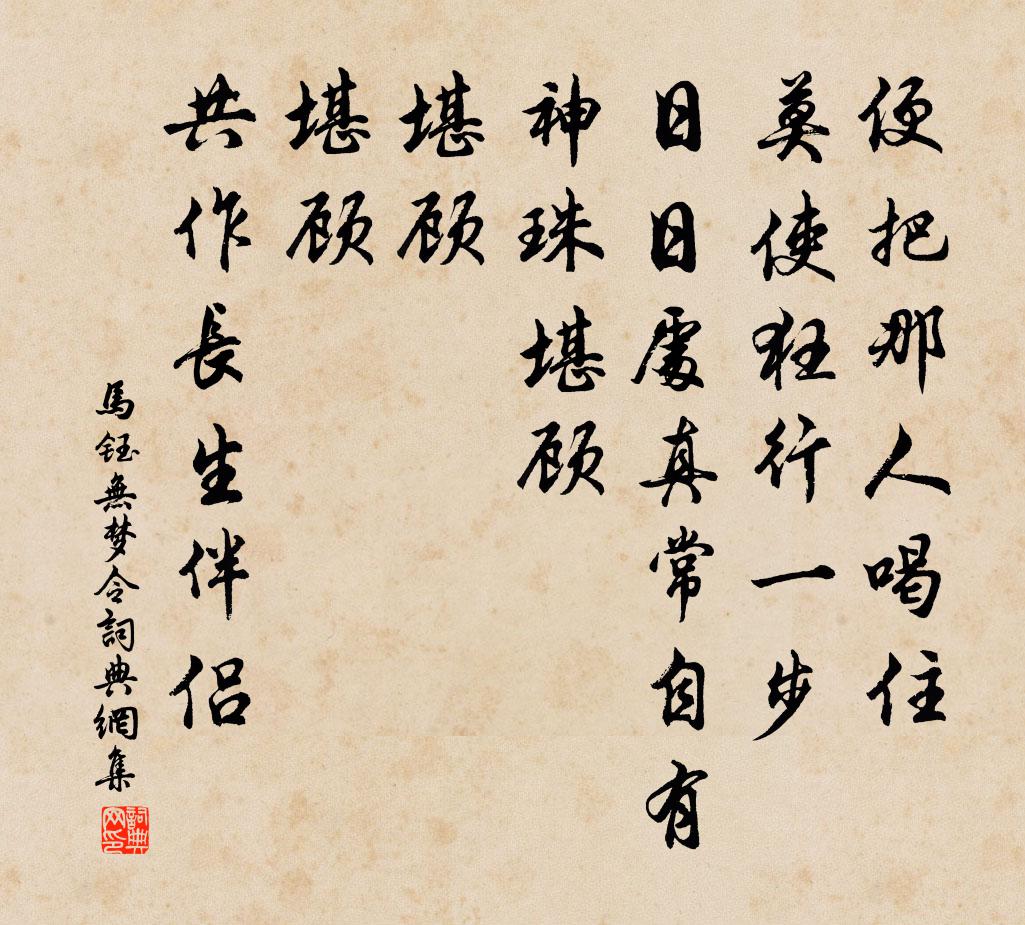 便把那人喝住
莫使狂行一步
日日處真常自有
神珠堪顾
堪顾
堪顾
共作長生伴侣
馬鈺無梦令詞典網集
詞典网印